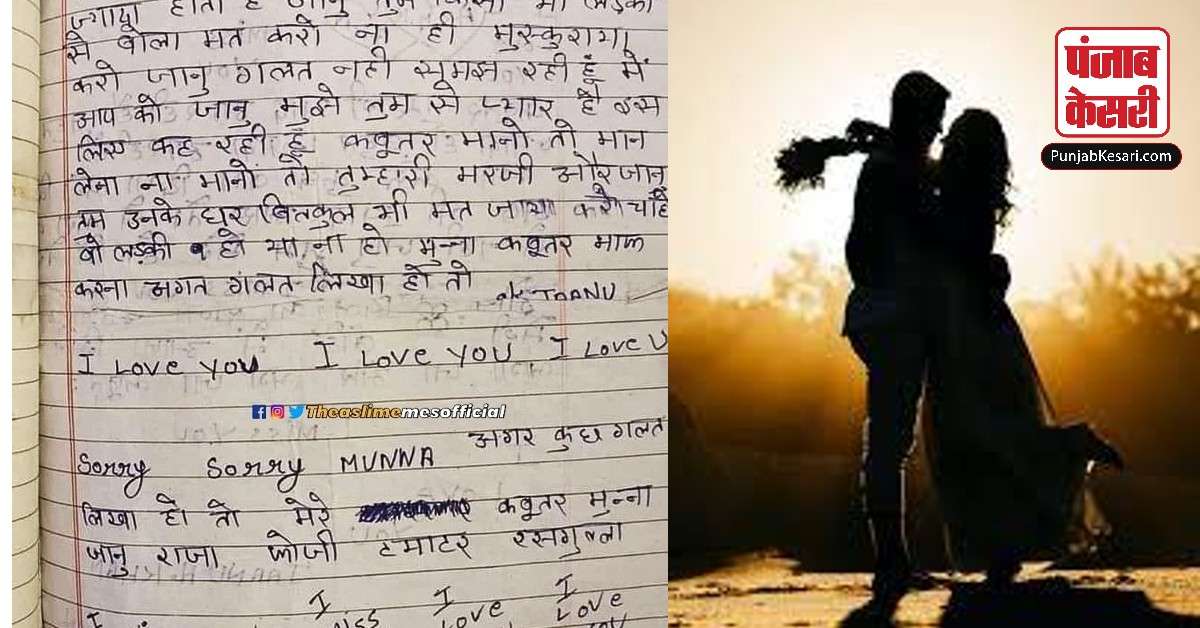 ज्यादा होता है जानु तुम किसी भी लड़की
से बोला मत करो ना ही मुस्कुराया
करो जानु गलत नही समझ रही हूं में
आप को जानु मुझे तुम से प्यार है इस
लिए कह रही हूं कबूतर मानो तो मान
लेना ना मानो तो तुम्हारी मरजी और जानु
तुम उनके घर बिलकुल भी मत जाया करो चाहे
वो लड़की हो या ना हो मुन्ना कबूतर माफ
करना अगत गलत लिखा हो तो
I Love you I Love YOU I Love U
Theaslimememesofficial
अगर कुछ गलत
Sorry Sorry MUNNA
लिखा हो तो मेरे कबूतर मुन्ना
जानु राजा फोजी टमाटर रसगुल्ला
I I I
I miss Love Love
पंजाब
केसरी
PunjabKesari.com